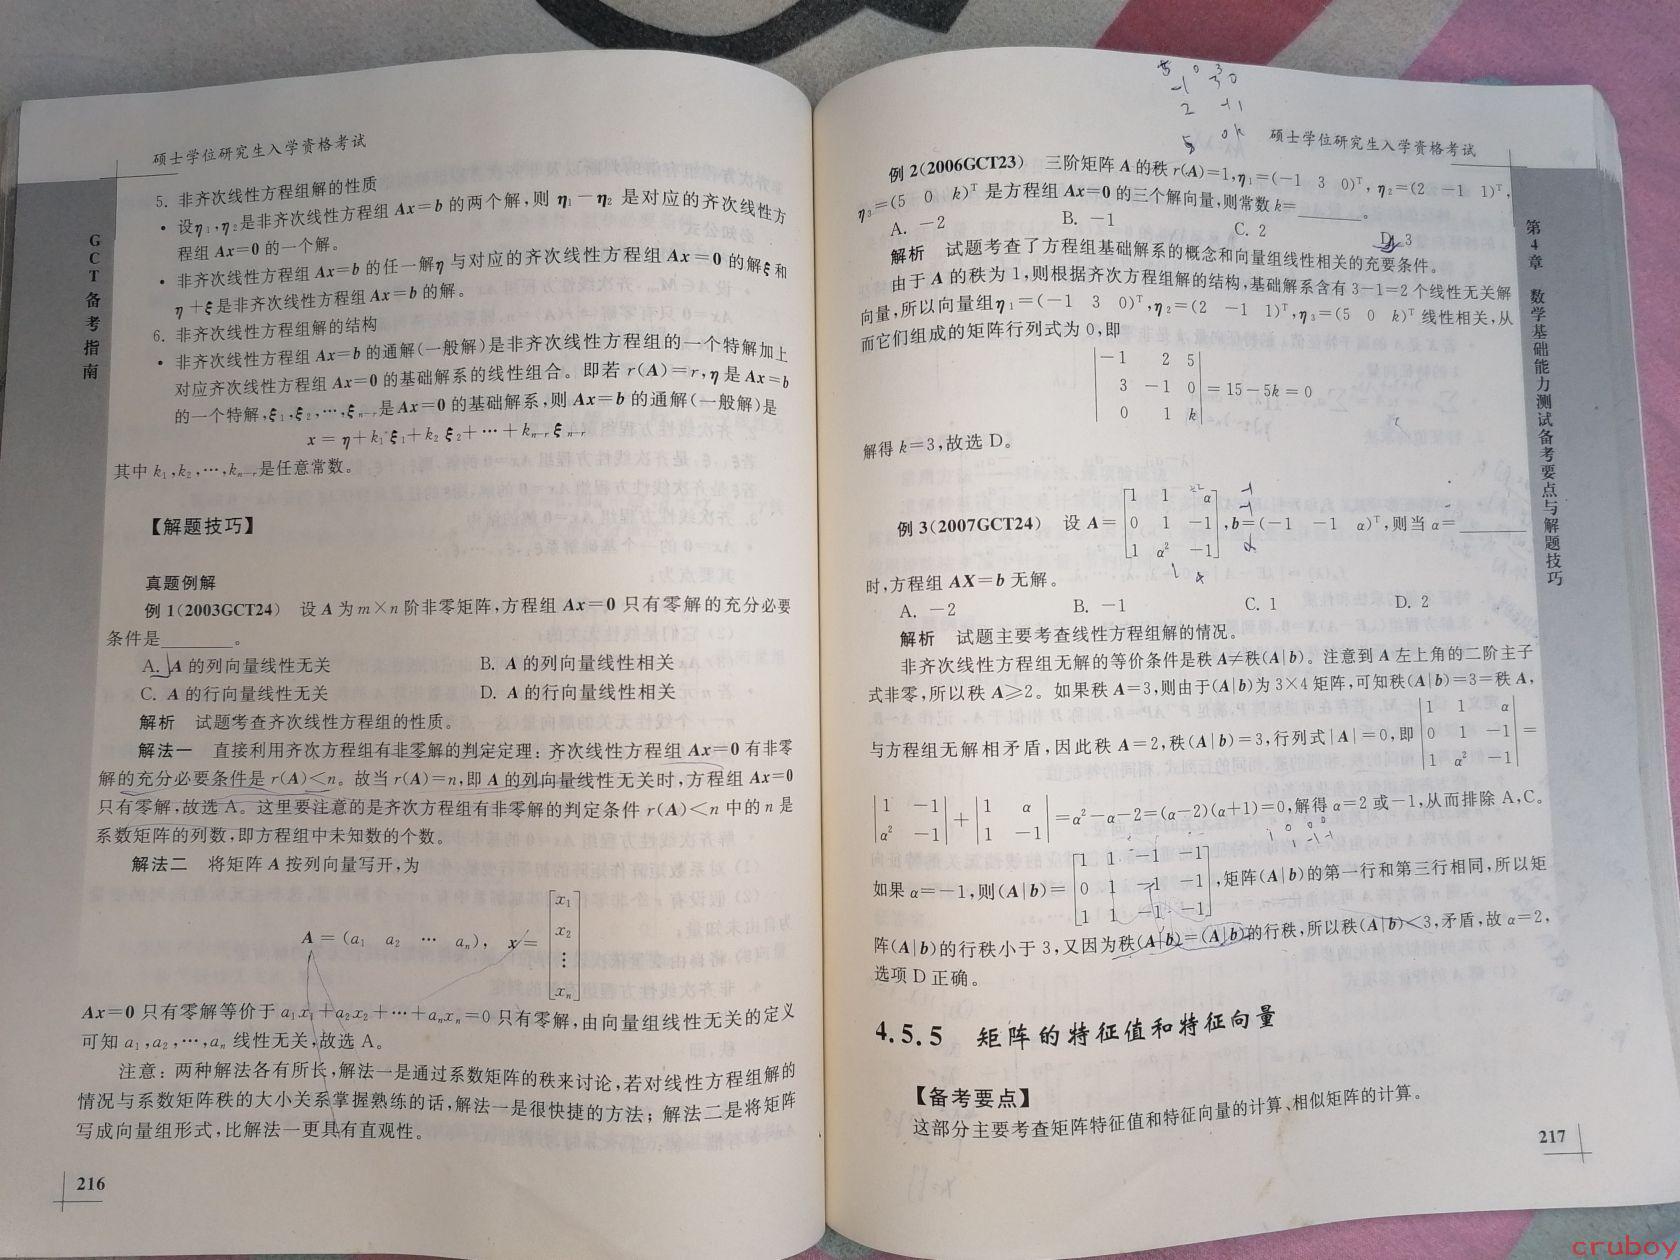 硕士学位研究生入学资格考试
GCT备考指南
5. 非齐次线性方程组解的性质
• 设η₁,η₂是非齐次线性方程组 Ax=b 的两个解,则 η₁-η₂ 是对应的齐次线性方
程组 Ax=0 的一个解。
• 非齐次线性方程组 Ax=b 的任一解η 与对应的齐次线性方程组 Ax=0 的解ξ和
η+ξ是非齐次线性方程组 Ax=b 的解。
6. 非齐次线性方程组解的结构
• 非齐次线性方程组 Ax=b 的通解(一般解)是非齐次线性方程组的一个特解加上
对应齐次线性方程组 Ax=0 的基础解系的线性组合。即若 r(A)=r,η是 Ax=b
的一个特解,ξ₁,ξ₂,⋯,ξₙ₋ᵣ是Ax=0 的基础解系,则 Ax=b 的通解(一般解)是
x=η+k₁ξ₁+k₂ξ₂+⋯+kₙ₋ᵣξₙ₋ᵣ
其中 k₁,k₂,⋯,kₙ₋ᵣ是任意常数。
【解题技巧】
真题例解
例 1(2003GCT24) 设 A 为 m×n 阶非零矩阵,方程组 Ax=0 只有零解的充分必要
条件是______。
A. A 的列向量线性无关 B. A 的列向量线性相关
C. A 的行向量线性无关 D. A 的行向量线性相关
解析 试题考查齐次线性方程组的性质。
解法一 直接利用齐次方程组有非零解的判定定理:齐次线性方程组 Ax=0 有非零
解的充分必要条件是 r(A)<n。故当 r(A)=n,即 A 的列向量线性无关时,方程组 Ax=0
只有零解,故选 A。这里要注意的是齐次方程组有非零解的判定条件 r(A)<n 中的 n 是
系数矩阵的列数,即方程组中未知数的个数。
解法二 将矩阵 A 按列向量写开,为
A=(a₁ a₂ ⋯ aₙ), x=[x₁ x₂ ⋮ xₙ]
Ax=0 只有零解等价于 a₁x₁+a₂x₂+⋯+aₙxₙ=0 只有零解,由向量组线性无关的定义
可知 a₁,a₂,⋯,aₙ 线性无关,故选 A。
注意:两种解法各有所长,解法一是通过系数矩阵的秩来讨论,若对线性方程组解的
情况与系数矩阵秩的大小关系掌握熟练的话,解法一是很快捷的方法;解法二是将矩阵
写成向量组形式,比解法一更具有直观性。
216
硕士学位研究生入学资格考试
第4章 数学基础能力测试备考要点与解题技巧
例 2(2006GCT23) 三阶矩阵 A 的秩 r(A)=1,η₁=(-1 3 0)ᵀ,η₂=(2 -1 1)ᵀ,
η₃=(5 0 k)ᵀ 是方程组 Ax=0 的三个解向量,则常数 k=______。
A. -2 B. -1 C. 2 D. 3
解析 试题考查了方程组基础解系的概念和向量组线性相关的充要条件。
由于 A 的秩为 1,则根据齐次方程组解的结构,基础解系含有 3-1=2 个线性无关解
向量,所以向量组η₁=(-1 3 0)ᵀ,η₂=(2 -1 1)ᵀ,η₃=(5 0 k)ᵀ 线性相关,从
而它们组成的矩阵行列式为 0,即
|-1 2 5|
|3 -1 0|=15-5k=0
|0 1 k|
解得 k=3,故选 D。
例 3(2007GCT24) 设 A=[1 1 α; 0 1 -1; 1 α² -1],b=(-1 -1 α)ᵀ,则当 α=______
时,方程组 AX=b 无解。
A. -2 B. -1 C. 1 D. 2
解析 试题主要考查线性方程组解的情况。
非齐次线性方程组无解的等价条件是秩 A≠秩(A|b)。注意到 A 左上角的二阶主子
式非零,所以秩 A≥2。如果秩 A=3,则由于(A|b)为 3×4 矩阵,可知秩(A|b)=3=秩 A,
与方程组无解相矛盾,因此秩 A=2,秩(A|b)=3,行列式|A|=0,即|1 1 α; 0 1 -1; 1 α² -1|=
|1 -1; α² -1|+|1 α; 1 -1|=α²-α-2=(α-2)(α+1)=0,解得 α=2 或-1,从而排除 A,C。
如果 α=-1,则(A|b)=[1 1 -1 -1; 0 1 -1 -1; 1 1 -1 -1],矩阵(A|b)的第一行和第三行相同,所以矩
阵(A|b)的行秩小于 3,又因为秩(A|b)=(A|b)的行秩,所以秩(A|b)<3,矛盾,故 α=2,
选项 D 正确。
4.5.5 矩阵的特征值和特征向量
【备考要点】
这部分主要考查矩阵特征值和特征向量的计算、相似矩阵的计算。
217
cruboy